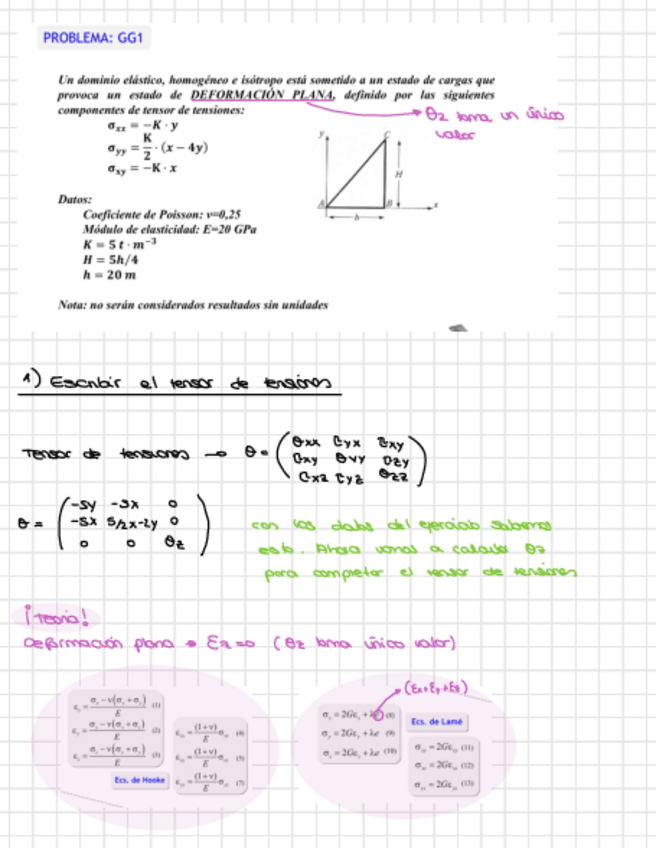 PROBLEMA: GG1
Un dominio elástico, homogéneo e isótropo está sometido a un estado de cargas que
provoca un estado de DEFORMACIÓN PLANA, definido por las siguientes
componentes de tensor de tensiones:
σxx = −K · y
σyy = K/2 · (x − 4y)
σxy = −K · x
θz toma un único
valor
y
C
H
A
B
x
h
Datos:
Coeficiente de Poisson: ν=0,25
Módulo de elasticidad: E=20 GPa
K = 5 t · m⁻³
H = 5h/4
h = 20 m
Nota: no serán considerados resultados sin unidades
1) Escribir el tensor de tensiones
Tensor de tensiones → θ = 
θxx τyx τxy
τxy θyy
τxz τyz θzz
θ =
-5y -5x 0
-5x 5/2x-2y 0
0 0 θz
con los datos del ejercicio sabemos
esto. Ahora vamos a calcular θz
para completar el tensor de tensiones
¡Teoría!
Deformación plana → εz=0 (θz toma único valor)
(εx+εy+εz)
(1)
(2)
(3)
Ecs. de Hooke
(1+ν)
E
(6)
(1+ν)
E
(5)
(1+ν)
E
(7)
(8)
σy = 2Gεy + λe (9)
σz = 2Gεz + λe (10)
Ecs. de Lamé
(11)
(12)
(13)